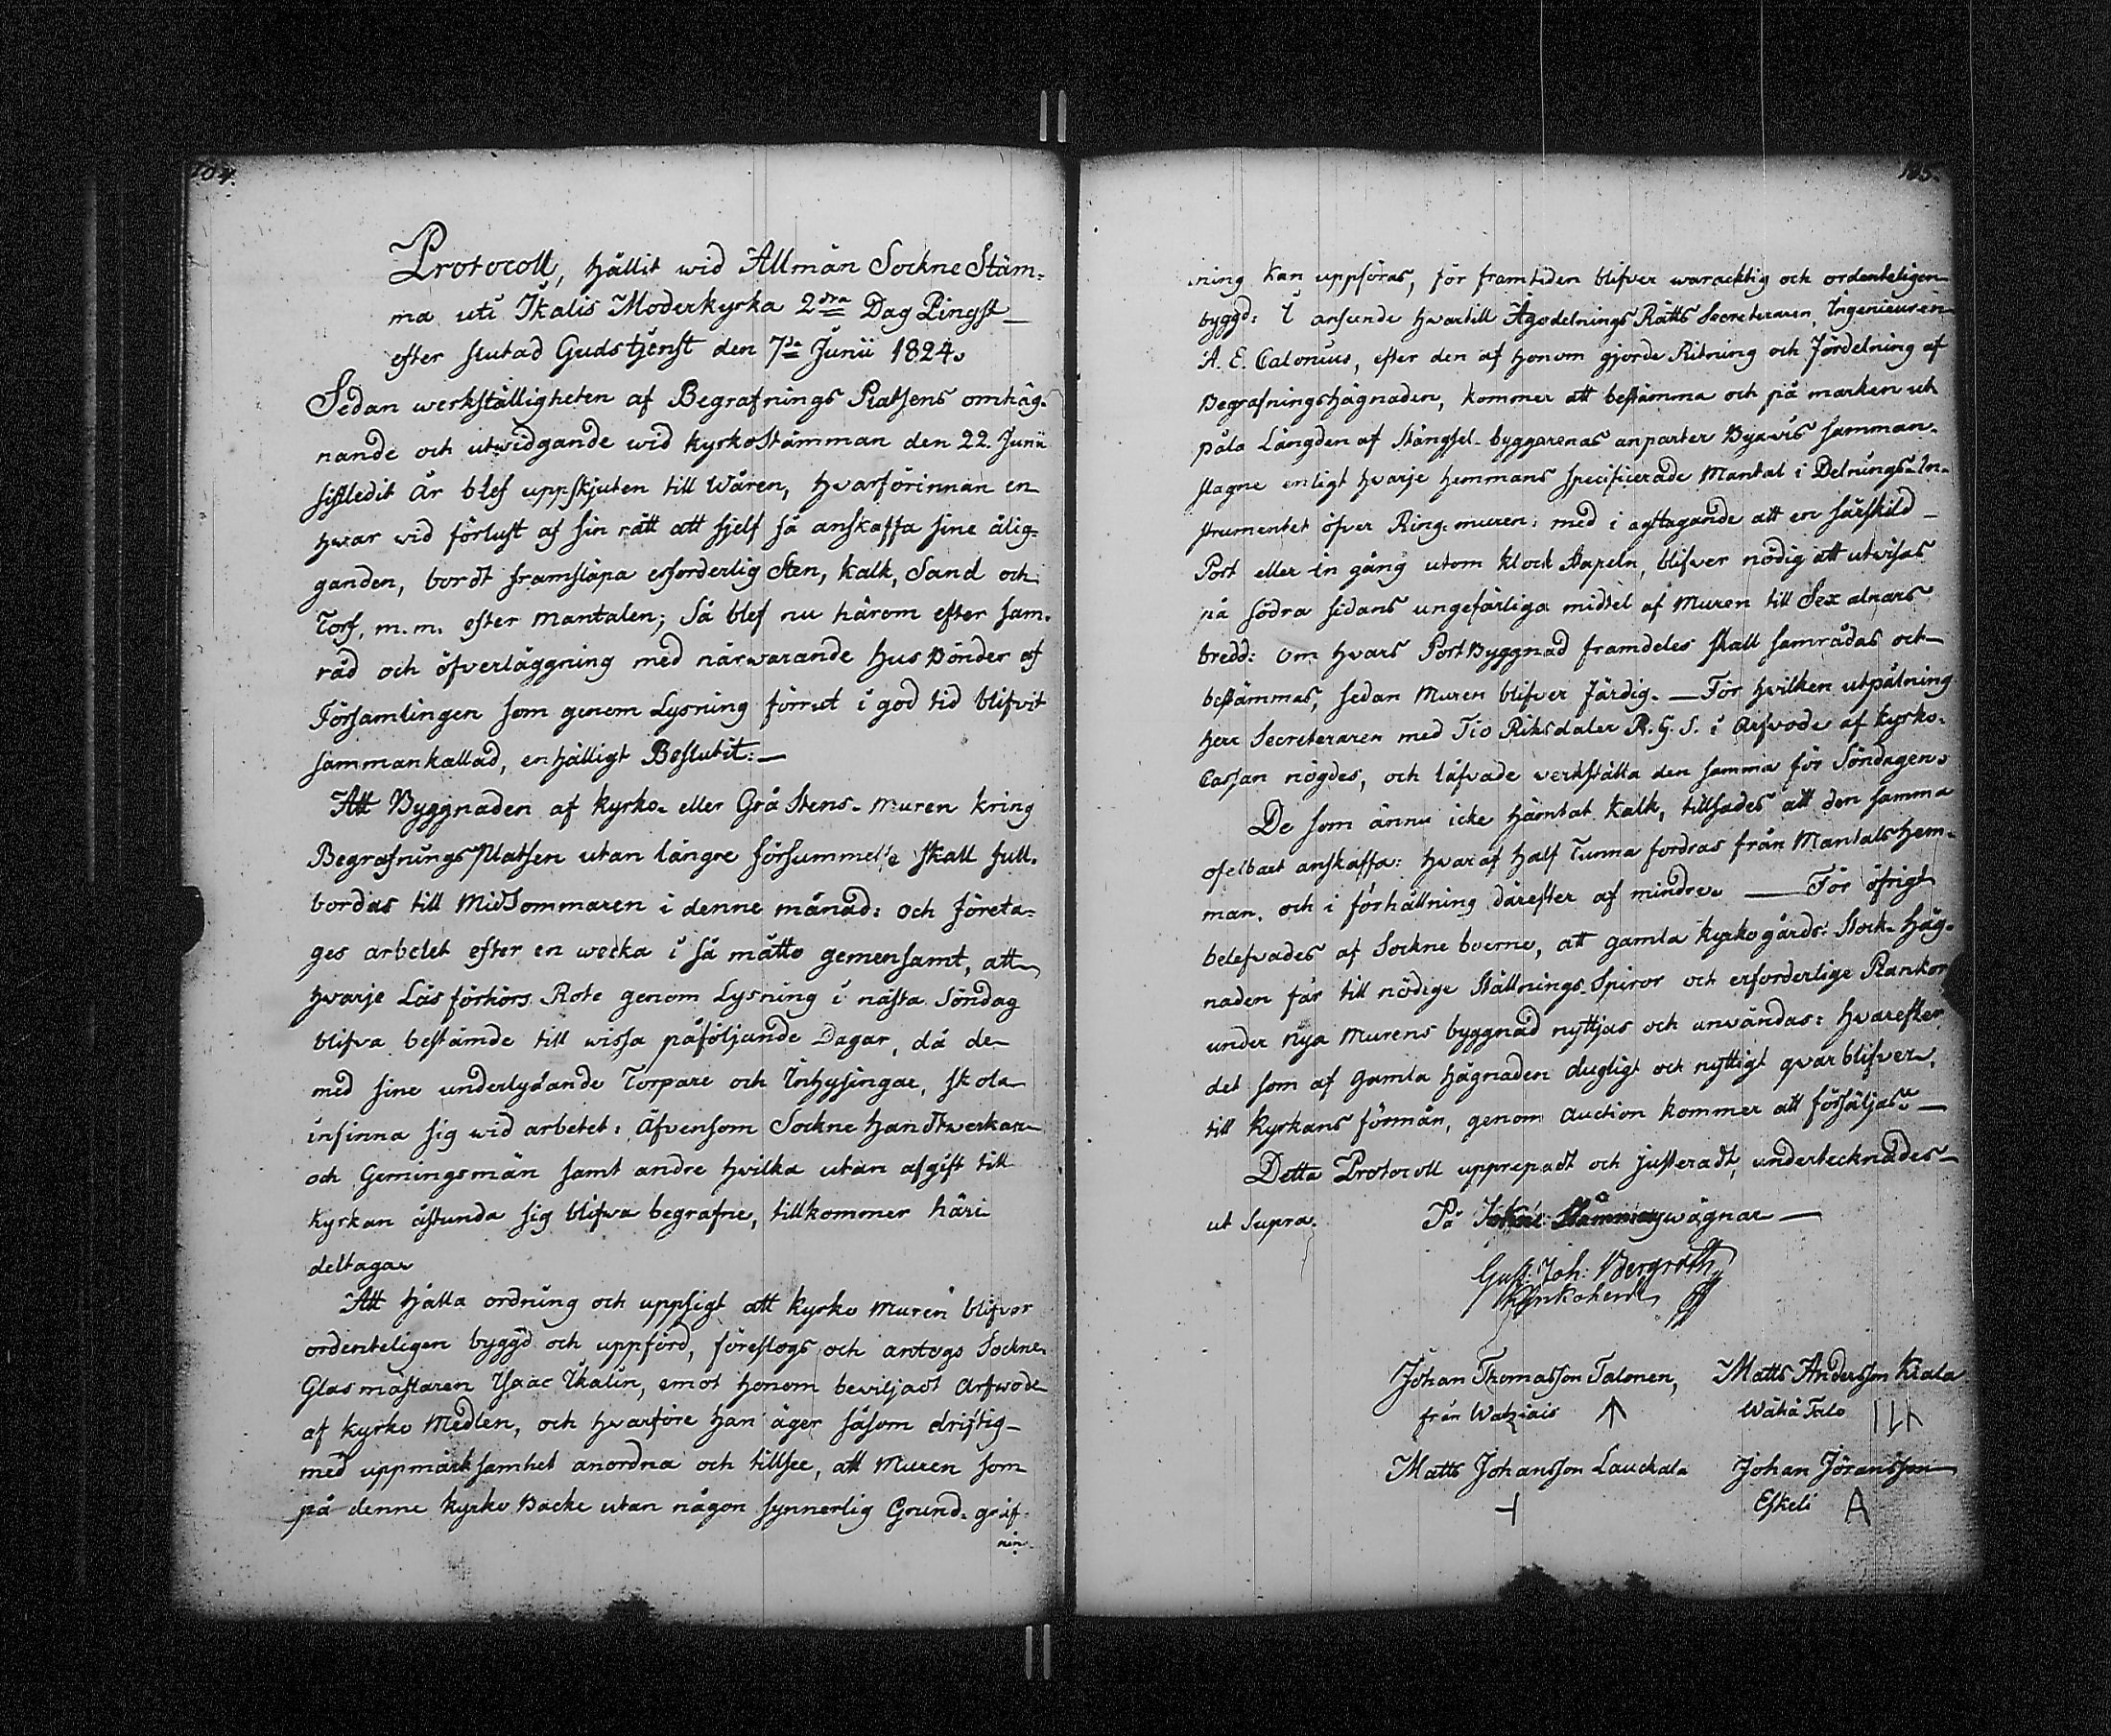 104.
Protocoll, hållit wid Allmän Sockne Stäm-
ma uti Ikalis Moderkyrka 2dra Dag Pingst
efter slutad Gudstjenst den 7de Junii 1824.
Sedan werkställigheten af Begrafnings Platsens omhäg-
nande och utwidgande wid kyrkoStämman den 22. Junii
sistledit År blef uppskjuten till Wåren, hvarförinnan en
hwar vid förlust af sin rätt att sjelf få anskaffa sine ålig-
ganden, bordt framsläpa erforderlig Sten, Kalk, Sand och
Torf, m.m. efter Mantalen; Så blef nu härom efter sam-
råd och öfverläggning med närwarande HusBönder af
Församlingen som genom Lysning förrut i god tid blifvit
sammankallad, enhälligt Beslutit:
Att Byggnaden af kyrko- eller Grå Stens- muren kring
BegrafningsPlatsen utan längre försummelse skall full-
bordas till MidSommaren i denne månad: och företa-
ges arbetet efter en wecka i så måtto gemensamt, att
hvarje Läsförhörs Rote genom Lysning i nästa Söndag
blifva bestämde till wissa påföljande Dagar, då de
med sine underlydande Torpare och Inhysingar, skola
infinna sig wid arbetet: Äfvensom Sockne Handtwerkare
och Gerningsmän samt andre hvilka utan afgift till
Kyrkan åstunda sig blifwa begrafne, tillkommer häri
deltaga.
Att hålla ordning och uppsigt att kyrko Muren blifver
ordenteligen byggd och uppförd, föreslogs och antogs Sockne-
Glasmästaren Isaac Ikalin, emot honom beviljadt Arfwode
af kyrko Medlen, och hvarföre han äger såsom driftig
med uppmärksamhet anordna och tillsee, att Muren som
på denne kyrko Backe utan någon synnerlig Grund-gräf-
nin-
105.
ning kan uppföras, för framtiden blifver waracktig och ordenteligen
byggd: I anseende hwartill Ägodelnings Rätts Secreteraren, Ingenieuren
A. E. Calonius, efter den af honom gjorde Ritning och Fördelning af
Begrafningshägnaden, kommer att bestämma och på marken ut-
påla Längden af Stängsel-byggarenas anparter Byawis samman-
slagne enligt hvarje hemmans specificerade Mantal i Delnings-In-
strumentet öfver Ring-muren: med i agttagande att en särskild
Port eller in gång utom Klock Stapeln, blifver nödig att utwisas
på södra sidans ungefärliga midtel af Muren till Sex alnars
bredd: om hvars PortByggnad framdeles skall samrådas och
bestämmas, sedan Muren blifver färdig. — För hvilken utpålning
Herr Secreteraren med Tio Riksdaler R.G.S. i Arfvode af kyrko-
Cassan nögdes, och låfvade verkställa den samma för Söndagen.
De som ännu icke hämtat Kalk, tillsades att den samma
ofelbart anskaffa: hvaraf half Tunna fordras från Mantals Hem-
man, och i förhållning därefter af mindre. — För öfrigt
belefvades af Sockne boerne, att gamla kyrkogårds: Stock-Häg-
naden får till nödige Ställnings-Spiror och erforderlige Plankor
under nya Murens byggnad nyttjas och användas: hvarefter
det som af Gamla hägnaden dugligt och nyttigt qvarblifver,
till Kyrkans förmån, genom Auction kommer att försäljas. —
Detta Protocoll upprepadt och justeradt, undertecknades
ut Supra. På Sokne Stämmans wägnar —
Gust: Joh: Bergroth
Kyrkoherde
Johan Thomasson Talonen, Matts Andersson Kiala
från Watziais Wähä Talo
Matts Johansson Lauckala Johan Jöransson
Eskeli A